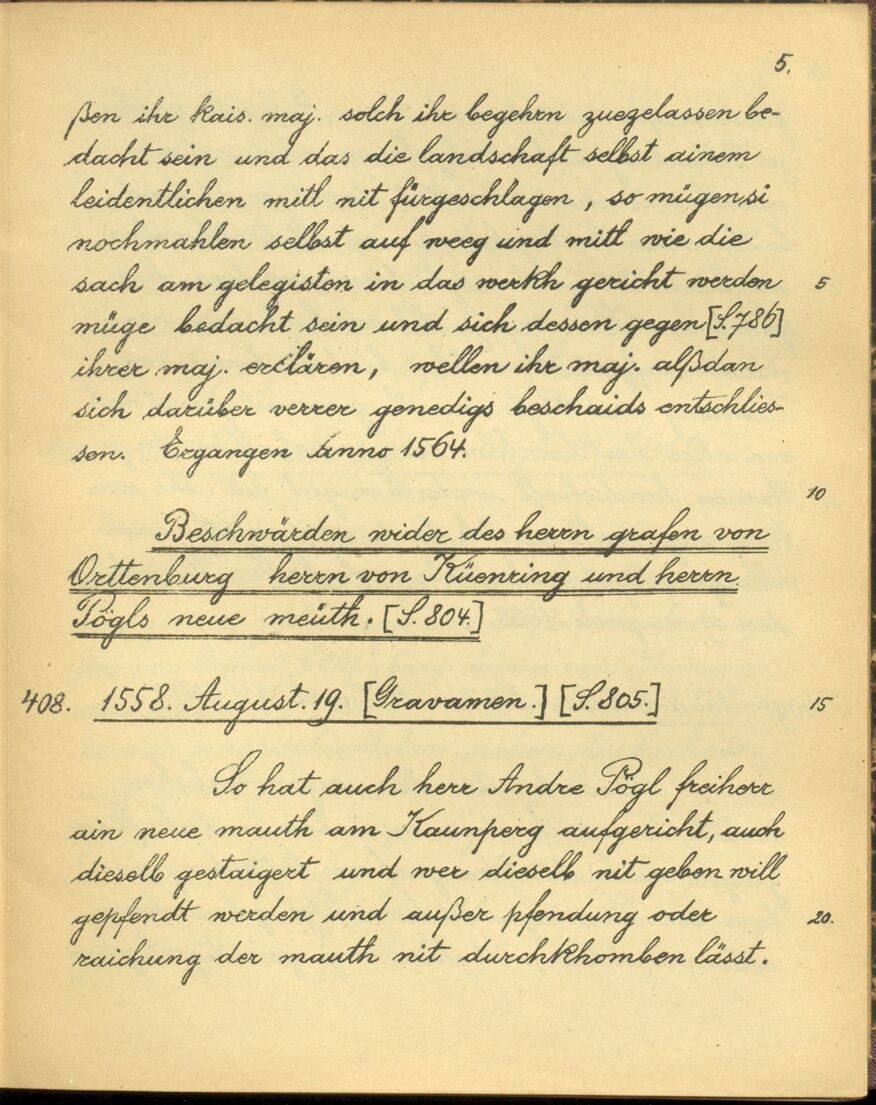 5.
ßen ihr kais. maj. solch ihr begehrn zuezelassen be-
dacht sein und das die landschaft selbst ainem
leidentlichen mitl nit fürgeschlagen, so mügen si
nochmahlen selbst auf weeg und mitl wie die
sach am gelegisten in das werkh gericht werden 5
müge bedacht sein und sich dessen gegen [S. 786]
ihrer maj. erclären, wellen ihr maj. alßdan
sich darüber verrer genedigs beschaids entschlies-
sen. Ergangen Anno 1564.
10
Beschwärden wider des herrn grafen von
Orttenburg herrn von Küenring und herrn
Pögls neue meüth. [S. 804.]
408. 1558. August. 19. [Gravamen.] [S. 805.] 15
So hat auch herr Andre Pögl freiherr
ain neue mauth am Kaunperg aufgericht, auch
dieselb gestaigert und wer dieselb nit geben will
gepfendt werden und außer pfendung oder 20.
raichung der mauth nit durchkhomben lässt.